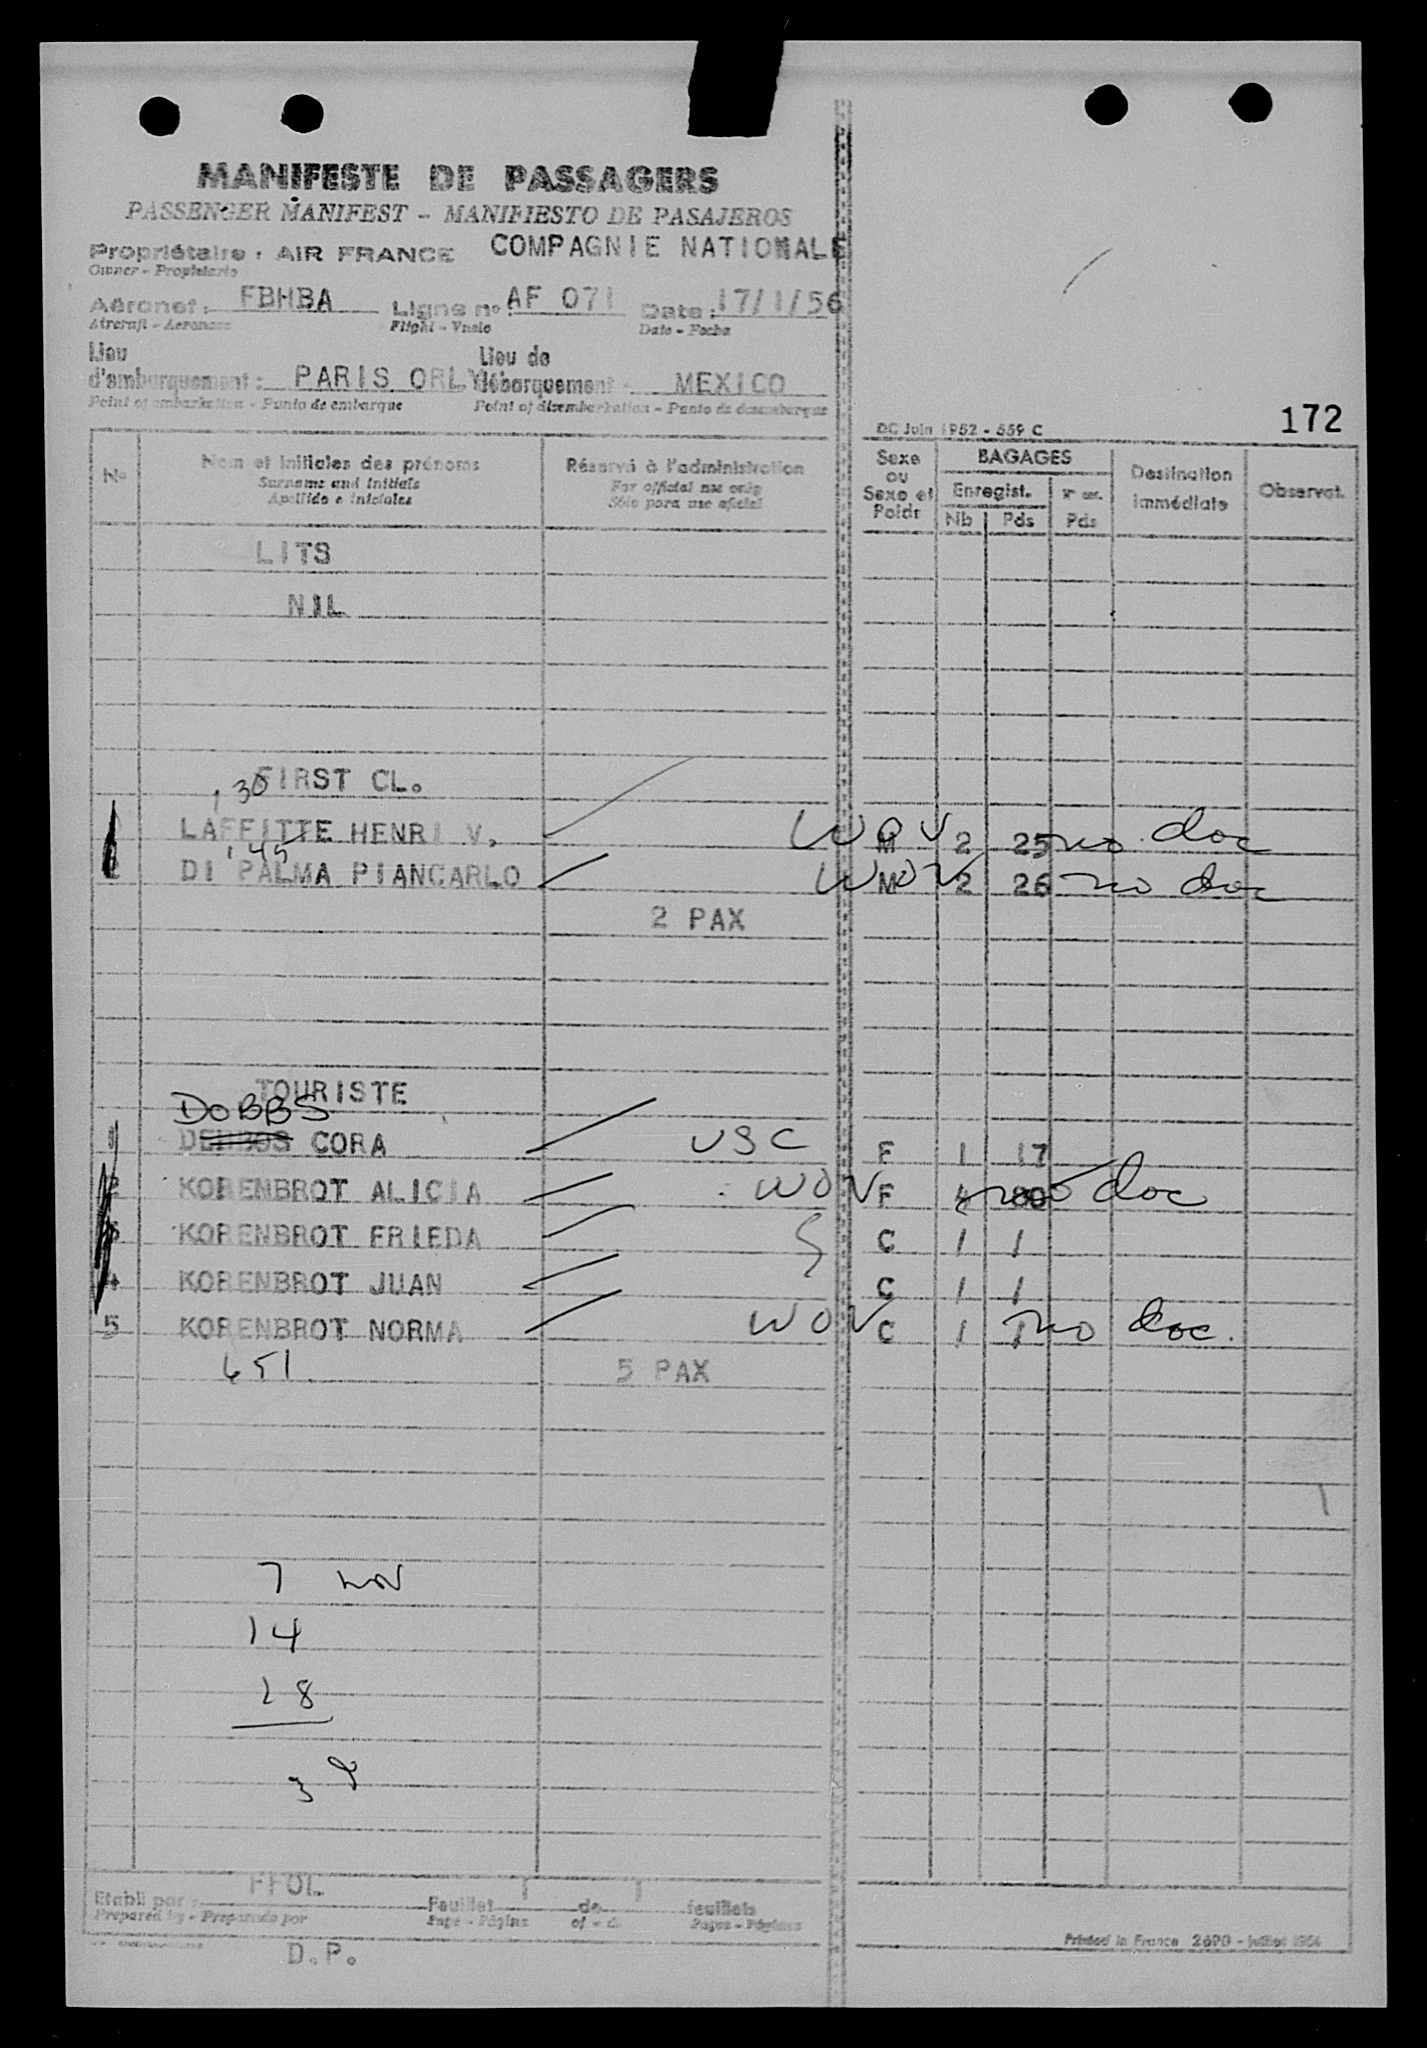 MANIFESTE DE PASSAGERS
PASSENGER MANIFEST - MANIFIESTO DE PASAJEROS
Propriétaire : AIR FRANCE COMPAGNIE NATIONALE
Owner - Propietario
Aéronef : FBHBA Ligne nº AF 071 Date : 17/1/56
Aircraft - Aeronave Flight - Vuelo Date - Fecha
Lieu d'embarquement : PARIS ORLY Lieu de débarquement - MEXICO
Point of embarkation - Punto de embarque Point of disembarkation - Punto de desembarque
DC Juin 1952 - 559 C 172
Nº Nom et initiales des prénoms Réservé à l'administration Sexe ou Sexe et Poids BAGAGES Destination immédiate Observat.
Surname and initials For official use only Enregist.
Apellido e iniciales Sólo para uso oficial Nb Pds Pds
LITS
NIL
FIRST CL.
30
LAFFITTE HENRI V. WOV M 2 25 no doc
45
DI PALMA PIANCARLO WOV M 2 26 no doc
2 PAX
TOURISTE
DOBBS
1 CORA USC F 1 17
2 KORENBROT ALICIA WOV F 4 80 no doc
3 KORENBROT FRIEDA C 1 1
4 KORENBROT JUAN C 1 1
5 KORENBROT NORMA WOV C 1 1 no doc.
651 5 PAX
7
14
18
38
Etabli par : Feuillet 1 de 1 feuillets
Prepared by - Preparado por Page - Página of - de Pages - Páginas
D.P.
Printed in France 2690 - juillet 1954